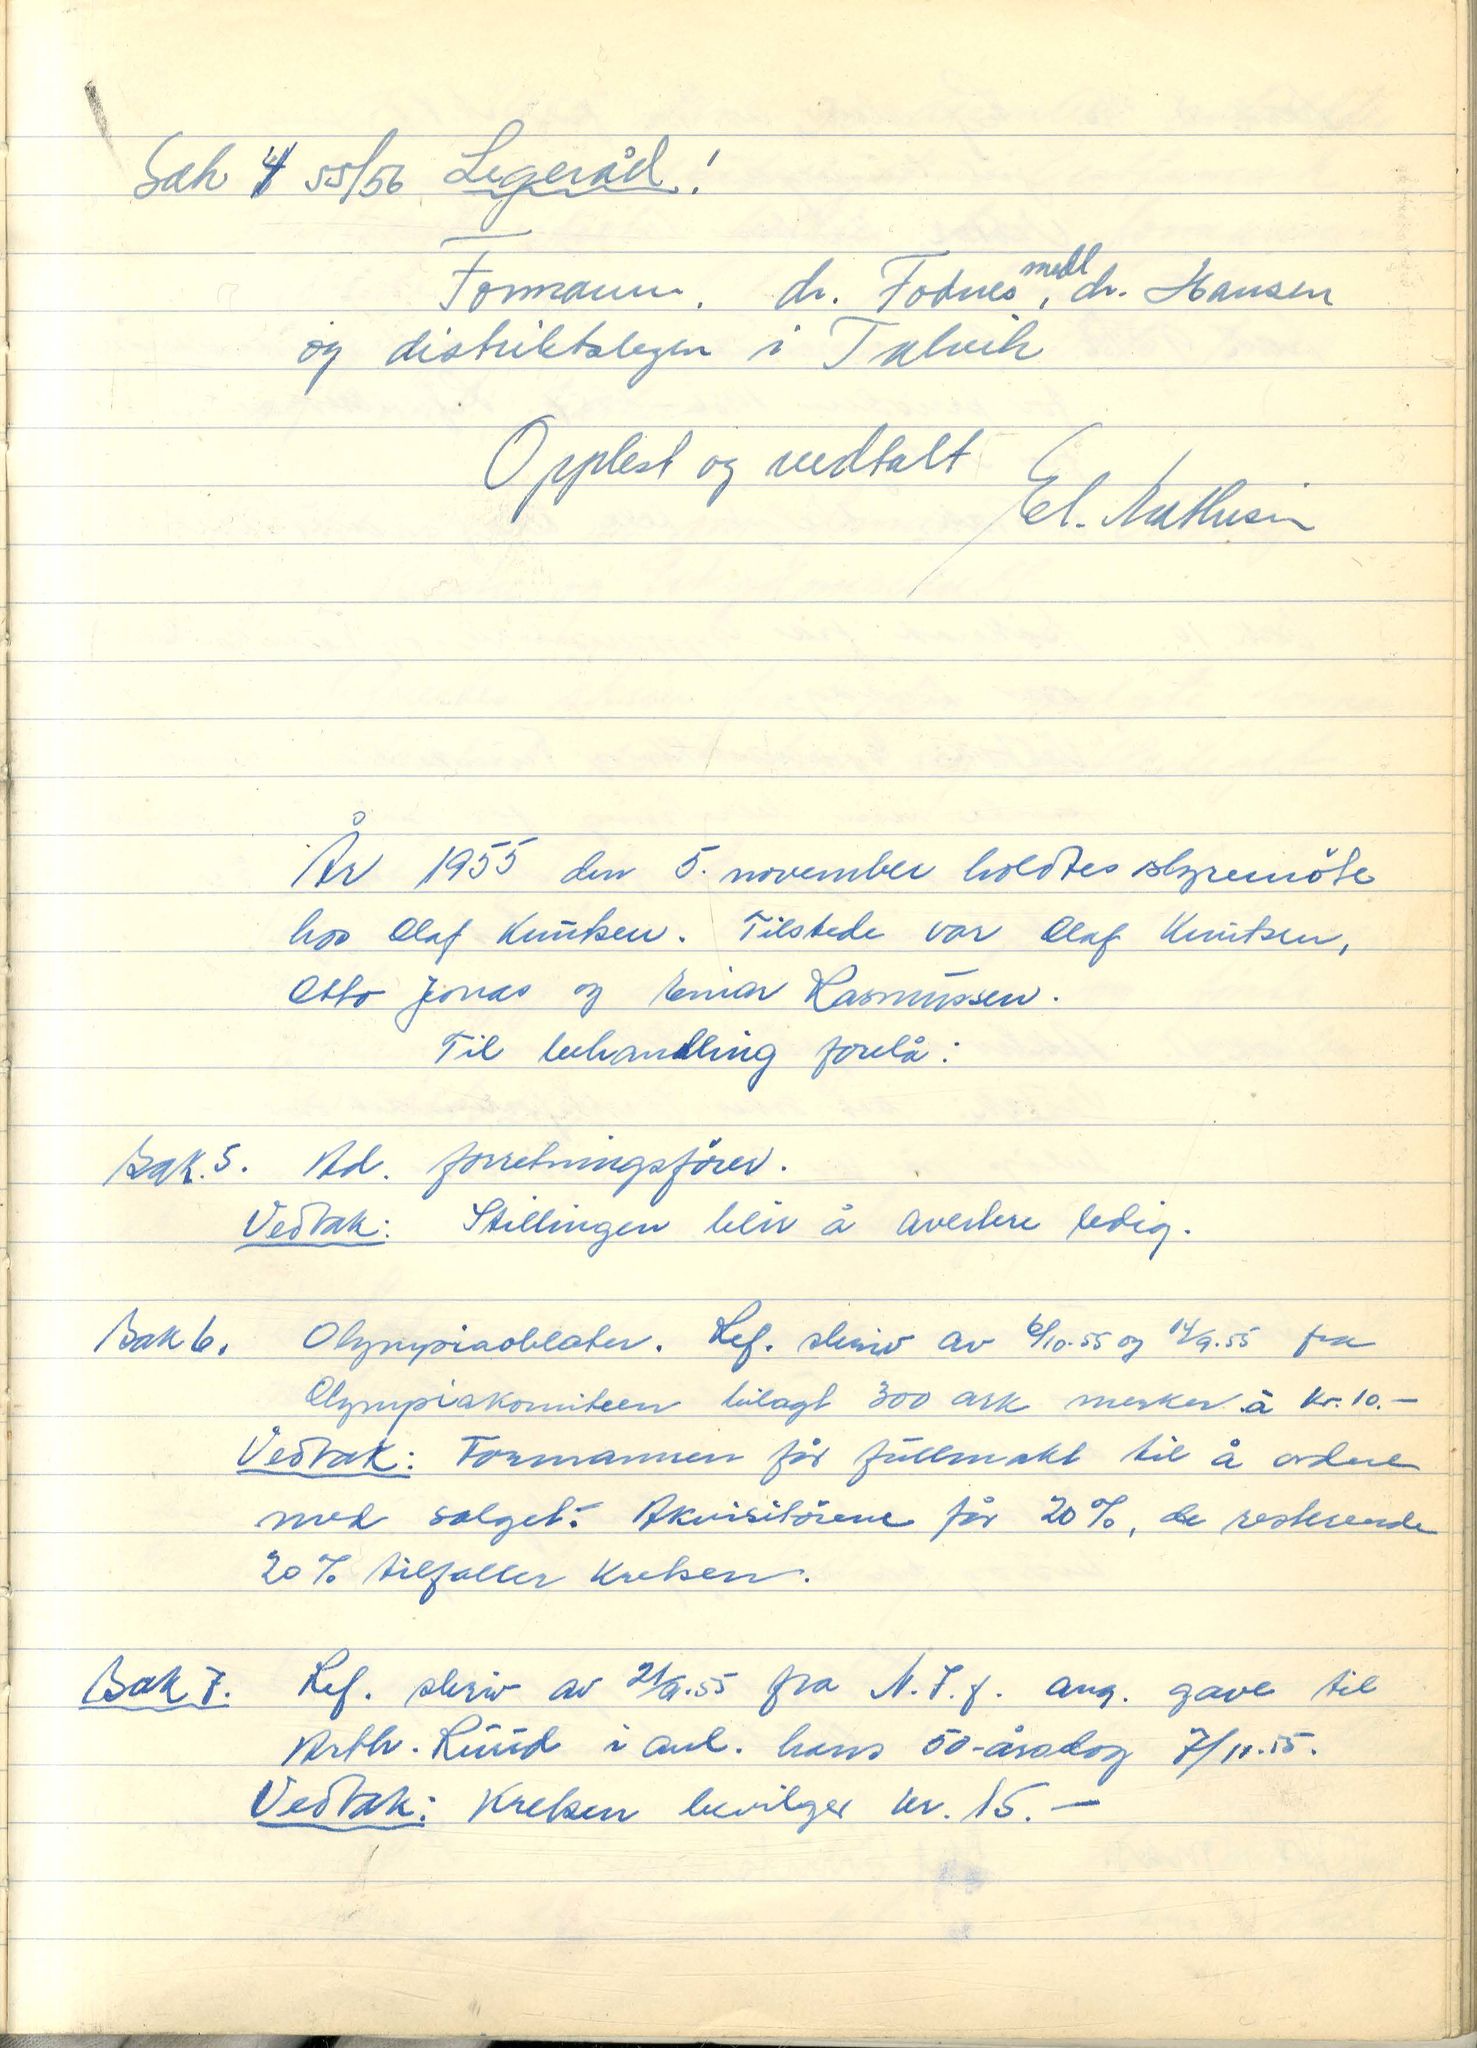 Sak 4 55/56 Legeråd!
Formann. dr. Fodnes, medl dr. Hansen
og distriktslegen i Talvik
Opplest og vedtatt
El. Mathisen
År 1955 den 5. november holdtes styremöte
hos Olaf Knutsen. Tilstede var Olaf Knutsen,
Otto Jonas og Einar Rasmussen.
Til behandling forelå:
Sak. 5. Ad. forretningsförer.
Vedtak: Stillingen blir å avertere ledig.
Sak 6. Olympiaoblater. Ref. skriv av 6/10.55 og 14/9.55 fra
Olympiakomiteen bilagt 300 ark merker à kr. 10.-
Vedtak: Formannen får fullmakt til å ordne
med salget. Akvisitörene får 20%, de resterende
20% tilfaller kretsen.
Sak 7. Ref. skriv av 21/9.55 fra N.I.f. ang. gave til
Arth. Ruud i anl. hans 50-årsdag 7/11.55.
Vedtak: Kretsen bevilger kr. 15.-